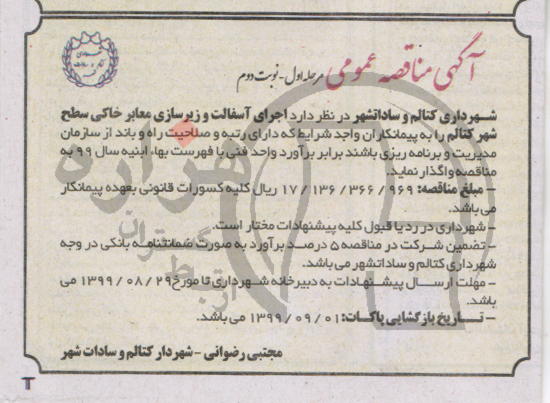 آگهی مناقصه عمومی مرحله اول - نوبت دوم
شهرداری کتالم و ساداتشهر در نظر دارد اجرای آسفالت و زیرسازی معابر خاکی سطح
شهر کتالم را به پیمانکاران واجد شرایط که دارای رتبه و صلاحیت راه و باند از سازمان
مدیریت و برنامه ریزی باشند برابر برآورد واحد فنی با فهرست بهاء ابنیه سال ۹۹ به
مناقصه واگذار نماید.
- مبلغ مناقصه: ۱۷/۱۳۶/۳۶۶/۹۶۹ ریال کلیه کسورات قانونی بعهده پیمانکار
می باشد.
- شهرداری در رد یا قبول کلیه پیشنهادات مختار است.
- تضمین شرکت در مناقصه ۵ درصد برآورد به صورت ضمانتنامه بانکی در وجه
شهرداری کتالم و ساداتشهر می باشد.
- مهلت ارسال پیشنهادات به دبیرخانه شهرداری تا مورخ ۱۳۹۹/۰۸/۲۹ می
باشد.
- تاریخ بازگشایی پاکات: ۱۳۹۹/۰۹/۰۱ می باشد.
مجتبی رضوانی - شهردار کتالم و سادات شهر
T
هزاره